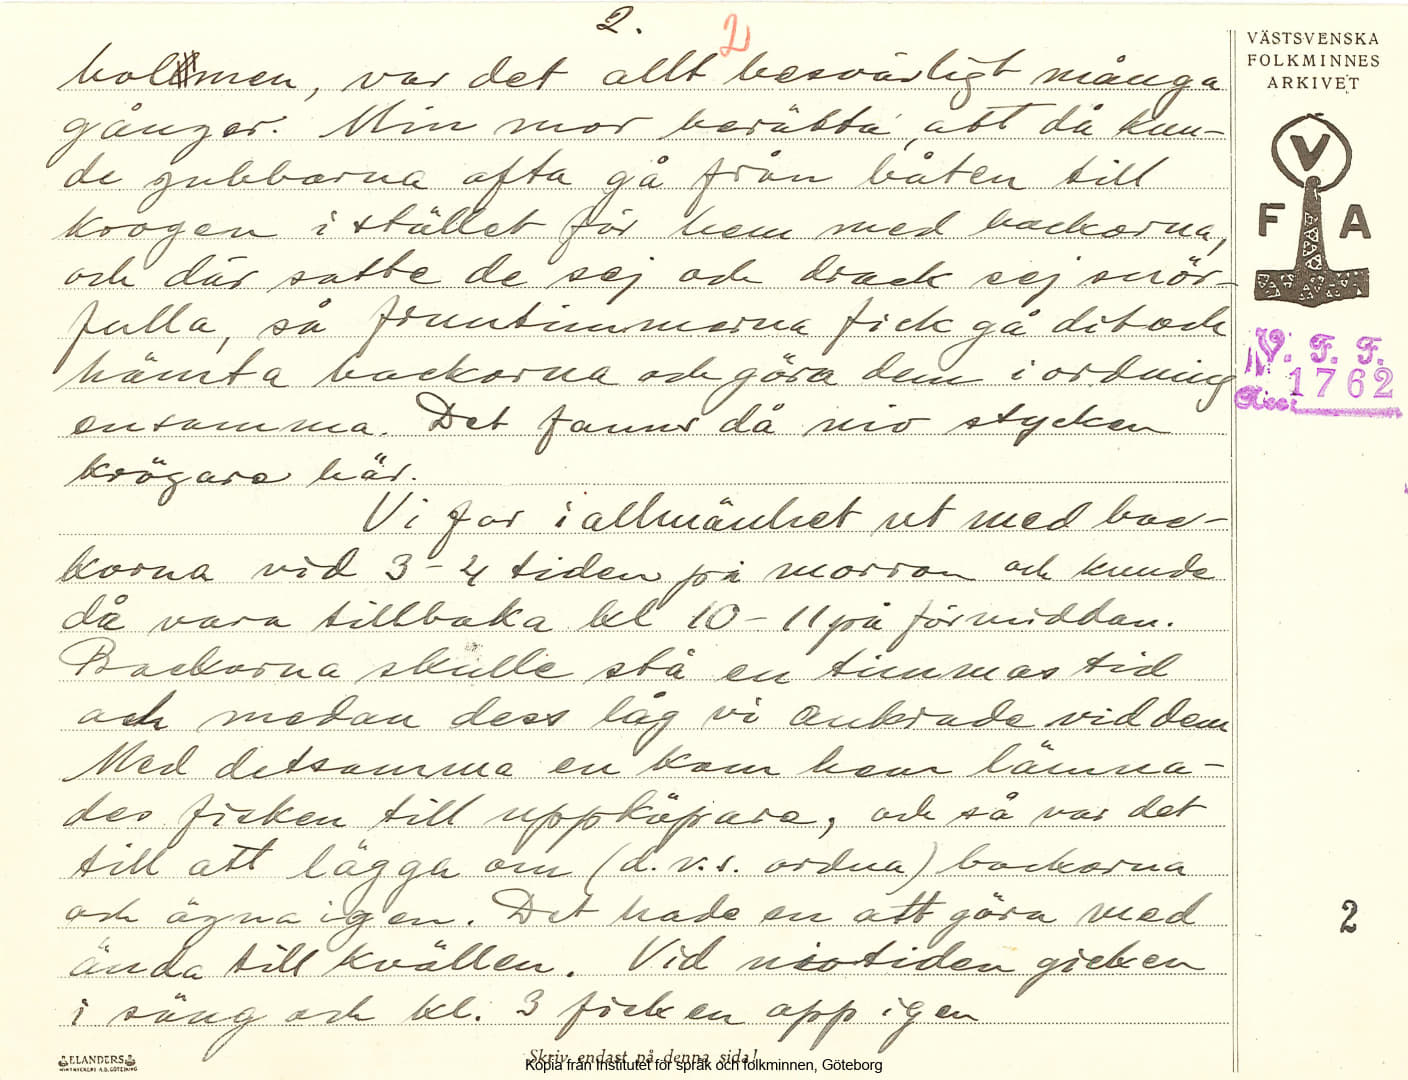 2. 2
holmen, var det allt besvärligt många
gånger. Min mor berätta, att då kun-
de gubbarna ofta gå från båten till
krogen istället för hem med backorna,
och där satte de sej och drack sej snör-
fulla, så fruntimmerna fick gå dit och
hämta backorna och göra dem i ordning
ensamma. Det fanns då nio stycken
krögare här.
Vi for i allmänhet ut med bac-
korna vid 3-4 tiden på morron och kunde
då vara tillbaka kl 10-11 på förmiddan.
Backorna skulle stå en timmas tid
och medan dess låg vi ankrade vid dem
Med detsamma en kom hem lämna-
des fisken till uppköpare, och så var det
till att lägga om (d.v.s. ordna) backorna
och ägna igen. Det hade en att göra med
ända till kvällen. Vid niotiden gick en
i säng och kl. 3 fick en opp igen
VÄSTSVENSKA
FOLKMINNES
ARKIVET
V
F A
V. F. F.
1762
Acc:
2
ELANDERS
Skriv endast på denna sida!
Kopia från Institutet för språk och folkminnen, Göteborg